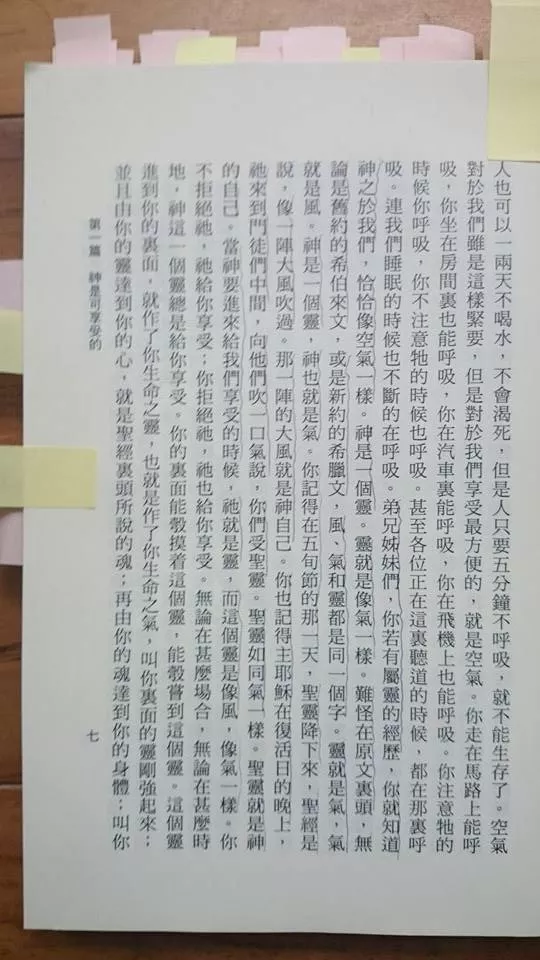 人也可以一兩天不喝水，不會渴死，但是人只要五分鐘不呼吸，就不能生存了。空氣
對於我們雖是這樣緊要，但是對於我們享受最方便的，就是空氣。你走在馬路上能呼
吸，你坐在房間裏也能呼吸，你在汽車裏能呼吸，你在飛機上也能呼吸。你注意牠的
時候你呼吸，你不注意牠的時候也呼吸。甚至各位正在這裏聽道的時候，都在那裏呼
吸。連我們睡眠的時候也不斷的在呼吸。弟兄姊妹們，你若有屬靈的經歷，你就知道
神之於我們，恰恰像空氣一樣。神是一個靈。靈就是像氣一樣。難怪在原文裏頭，無
論是舊約的希伯來文，或是新約的希臘文，風、氣和靈都是同一個字。靈就是氣，氣
就是風。神是一個靈，神也就是氣。你記得在五旬節的那一天，聖靈降下來，聖經是
說，像一陣大風吹過。那一陣的大風就是神自己。你也記得主耶穌在復活日的晚上，
祂來到門徒們中間，向他們吹一口氣說，你們受聖靈。聖靈如同氣一樣。聖靈就是神
的自己。當神要進來給我們享受的時候，祂就是靈，而這個靈是像風，像氣一樣。你
不拒絕祂，祂給你享受；你拒絕祂，祂也給你享受。無論在甚麼場合，無論在甚麼時
地，神這一個靈總是給你享受。你的裏面能彀摸着這個靈，能彀嘗到這個靈。這個靈
進到你的裏面，就作了你生命之靈，也就是作了你生命之氣，叫你裏面的靈剛強起來；
並且由你的靈達到你的心，就是聖經裏頭所說的魂；再由你的魂達到你的身體；叫你
第一篇　神是可享受的
七